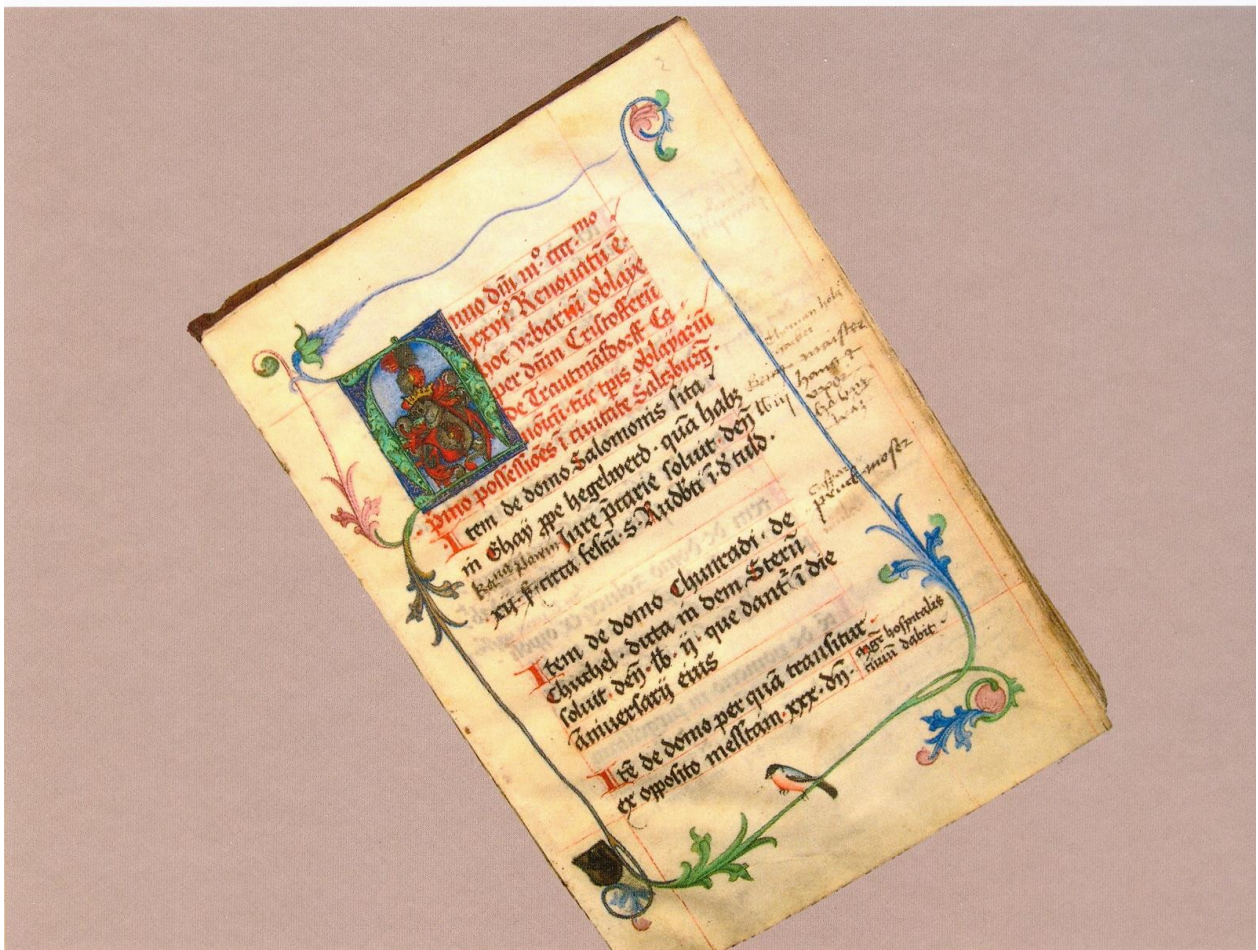 nno dn̄i mº cccc.mo
lxxvjº Renouatū ē.
hoc vrbariū oblaye
per dn̄m Cristofferū
de Trautmāldorff. Ca
noīcū. tūc tp̄is oblayariū
Primo possessiōes ī ciuitate Salczburḡ.
Item de domo Salomonis sita
in Ghay ꝓpe hegelwerd. quā habz
Iure p̄carie soluit den̄ lib iij
xij. s̄ circa festū. S. Rudb̄ti ī. d tuld.
Item de domo Chunradi. de
Chuchel. dicta in dem Stern̄
soluit. den̄. lb. ij. que dant̄ ī die
ān̄iuersarij eius
Itē de domo per quā transitur.
ex opposito messtam. xxx. dn̄.
mgr̄ hospitalis
ciuiū dabit.
maister
hanns
moser